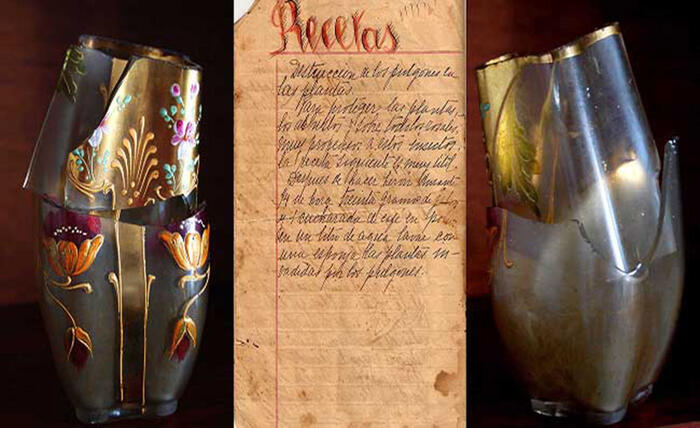 Recetas
Destruccion de los pulgones en
las plantas.
Para proteger las plantas,
los arbustos y sobre todo los rosales,
muy propensos a estos insectos,
la receta siguiente es muy útil.
Despues de hacer hervir durante
de hora treinta gramos de
1 cucharada de
en un litro de agua, lavar con
una esponja las plantas in-
vadidas por los pulgones.